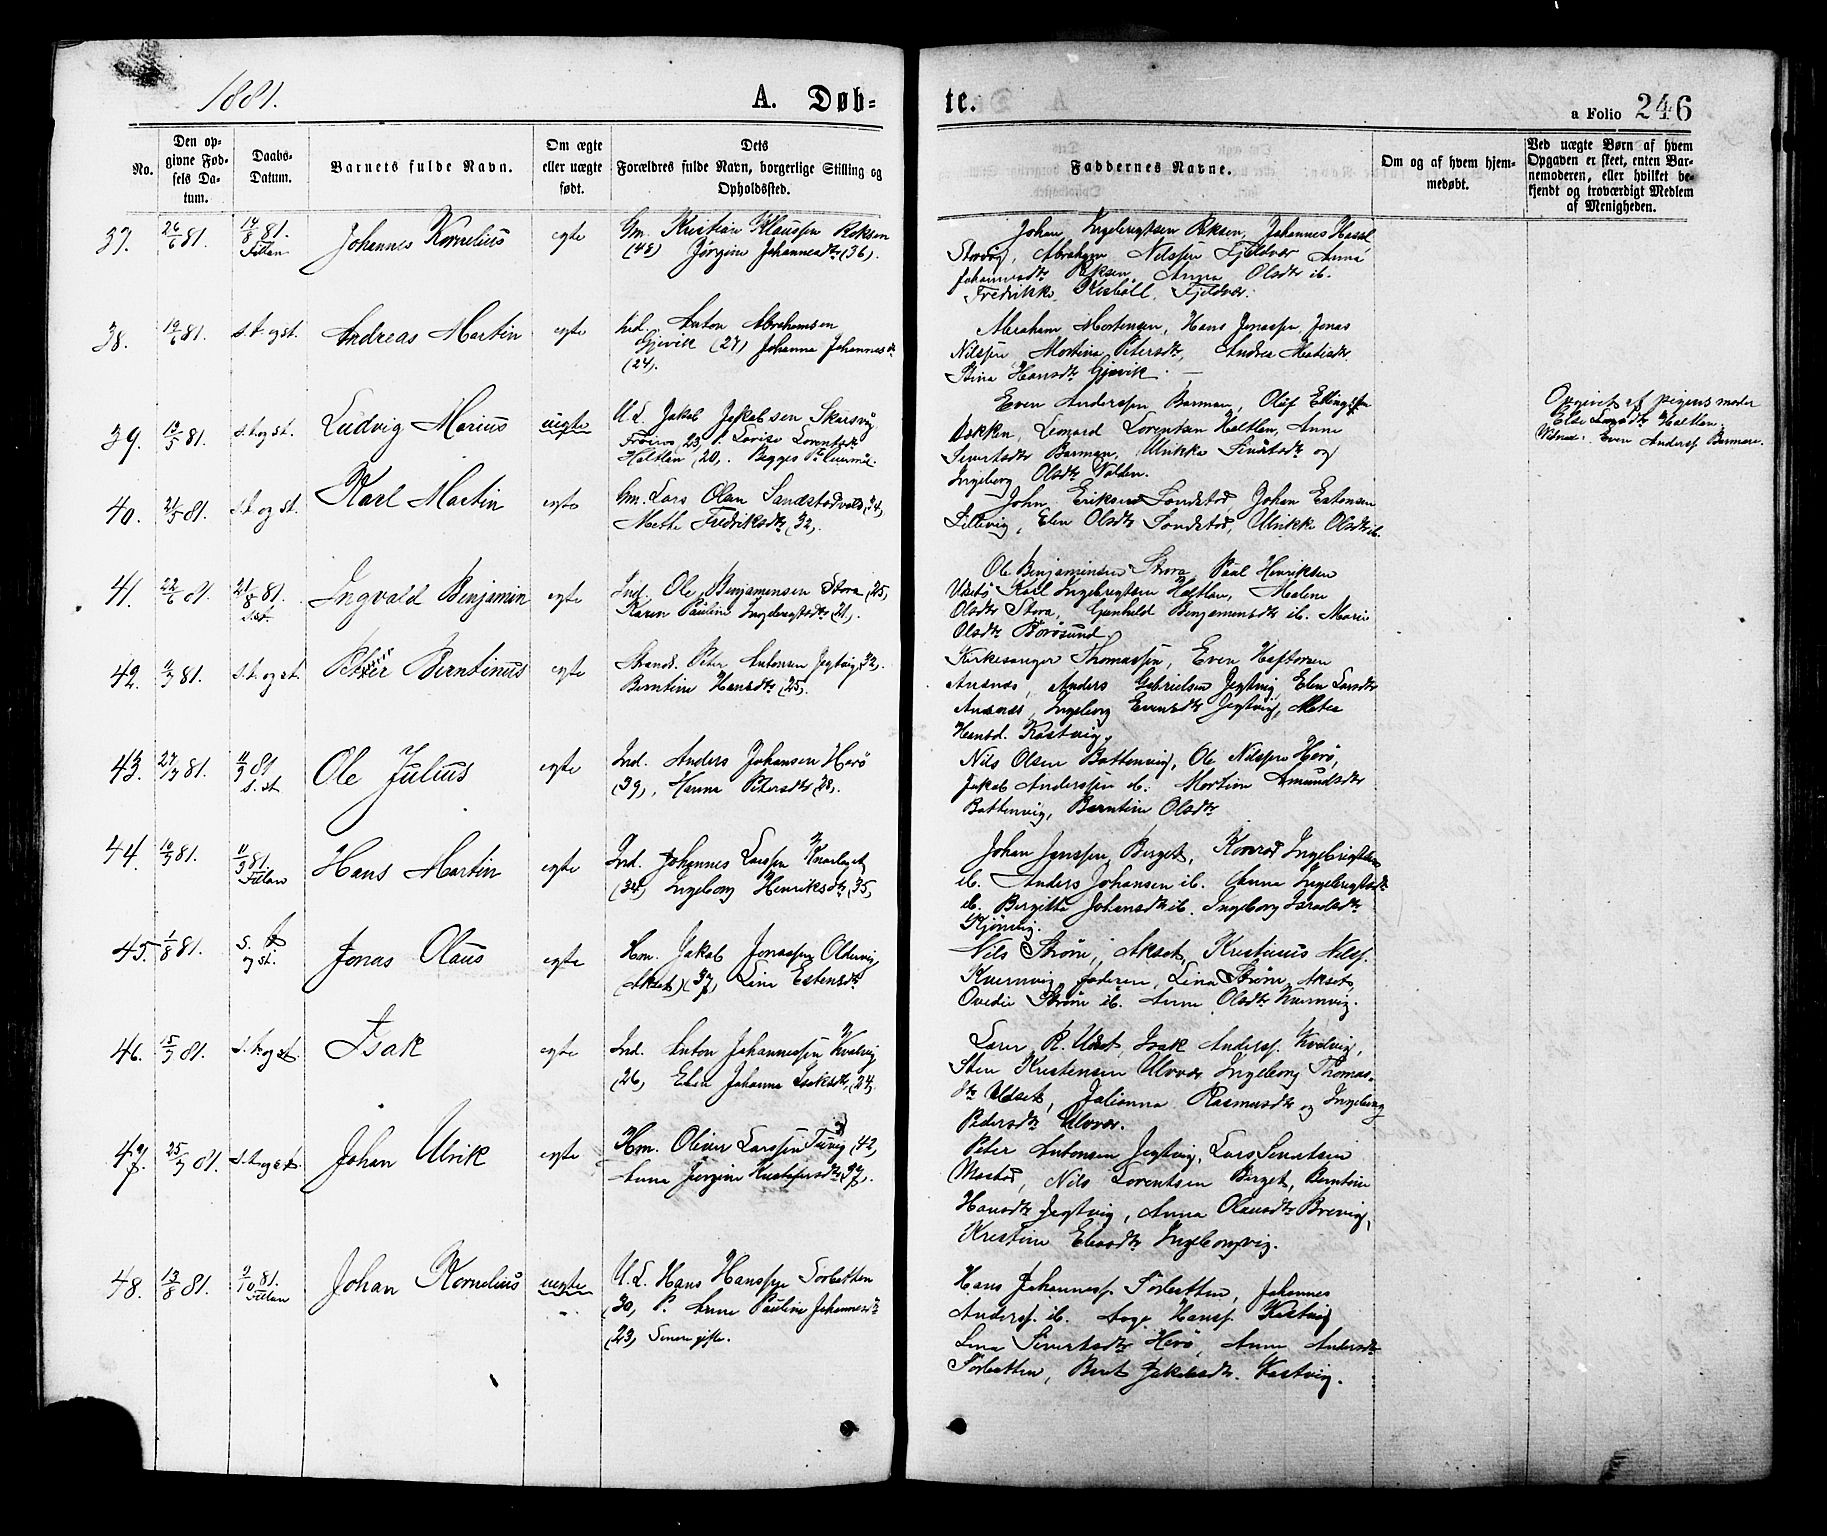 1881.
A. Døb-
te.
a Folio 246
No.
Den op-
givne Fød-
sels Da-
tum.
Daabs-
Datum.
Barnets fulde Navn.
Om ægte
eller uægte
født.
Dets
Forældres fulde Navn, borgerlige Stilling og
Opholdssted.
Faddernes Navne.
Om og af hvem hjem-
medøbt.
Ved uægte Børn af hvem
Opgaven er skeet, enten Bar-
nemoderen, eller hvilket be-
kjendt og troværdigt Medlem
af Menigheden.
37. 26/6 81. 14/8 81. Fillan Johannes Kornelius egte Gm. Kristian Klaussen Reksen
(48) Jørgine Johannesdtr (36).
Johan Ingebrigtsen Reksen, Johannes Hassel
Storvig, Abraham Nilssen Fjeldvær Anna
Johannesdtr Reksen, Anna Olsdtr ib.
Fredrikke Fjeldvær.
38. 19/6 81. s.t. og st. Andreas Martin egte Ind. Anton Abrahamsen
Gjevik (27) Johanna Johannesdtr
(24).
Abraham Mortensen, Hans Jonassen, Jonas
Nilssen Martina Petersdtr, Andrea
Stina Hansdtr Gjevik. —
39. 13/5 81. s.t. og st. Ludvig Marius uegte U.K. Jakob Jakobsen Skarsvåg
Frøien 23, P. Lovise Lorentsdtr
Holtlen (20, Begges
Even Anderssen Barman, Oluf Ellingsen
Bakken, Leonard Lorentsen Holtlen, Anne
Sivertsdtr Barman, Ulrikke Sivertsdtr og
Ingeborg Olsdtr Valden.
Opgivet af pigens moder
Else Larsdtr Holtlen.
Vidne: Even Anderss. Barman.
40. 21/5 81. s.t. og st. Karl Martin egte Gm. Lars Olsen Sandstadvald, (34,
Meth. Fredriksdtr (32,
John Eriksen Sandstad, Johan Estensen
Lillevig, Elen Olsdtr Sandstad, Ulrikke Olsdtr ib.
41. 22/6 81. 21/8 81. Ingvald Benjamin egte Ind. Ole Benjaminsen Stora (25,
Karen Pauline Ingebrigtsdtr (21,
Ole Benjaminsen Stora, Paul Henriksen
Karl Ingebrigtsen Holtlen, Malene
Olsdtr Stora, Gunhild Benjaminsdtr ib. Marie
Olsdtr Borøsund.
42. 81. s.t. og st. Petter Berntinus egte Strands. Peter Antonsen Jegtvig, 32,
Berntine Hansdtr (25,
Kirkesanger Thomassen, Even Haftorsen
Ansnæs, Anders Gabrielsen Jegtvig, Elen Larsdtr
Ansnæs, Ingeborg Evensdtr Jegtvig, Meta
Hansd. Kastvig,
43. 27/7 81. 11/9 81 s. st Ole Julius egte Ind. Anders Johansen Herø
(39), Hanna Petersdtr (28.
Nils Olsen Battenvig, Ole Nilssen Herø,
Jakob Anderssen ib. Martine Amundsdtr
Battenvig, Berntine Olsdtr
44. 10/7 81. 11/9 81. Fillan Hans Martin egte Ind. Johannes Larssen Knarlaget
(34, Ingeborg Henriksdtr (35,
Johan Jenssen Berget, Konrad Ingebrigtsen
ib. Anders Johansen ib. Anna Ingebrigtsdtr
ib. Bergitte Johansdtr ib. Ingeborg Israelsdtr
45. 1/8 81. s. t og st. Jonas Olaus egte Hm. Jakob Jonassen Oldervig,
(Akset) (37, Line Estensdtr
Nils Strøm, Akset, Kristianus Nilss.
Kvernvig, faderen, Lina Strøm, Akset,
Ovedie Strøm ib. Anne Olsdtr Kvernvig.
46. 15/7 81. s.t. og st Isak egte Ind. Anton Johannessen Kvalvig
(26, Elen Johanna Isaksdtr, (24,
Lærer R. Udset, Isak Anderss. Kvalvig,
Sten Kristensen Ulvvær Ingeborg Thomas-
dtr Udset, Julianna Rasmusdtr og Ingeborg
Pedersdtr Ulvvær.
47. 25/7 81. s.t. og st. Johan Ulrik egte Hm. Oliver Larssen Tuvig (42,
Anna Jørgine Kristofersdtr (37,.
Peter Antonsen Jegtvig, Lars Sivertsen
Mastad, Nils Lorentsen Berget, Berntine
Hansdtr Jegtvig, Anna Olausdtr Brevig,
Kristine Ingeborgvig.
48. 13/8 81. 2/10 81. Fillan Johan Kornelius uegte U.K. Hans Hanssen Sørbotten
(30, P. Anne Pauline Johannesdtr
(23, Senere gifte.
Hans Johanness. Sørbotten, Johannes
Anderss. ib. Aage Hanss. Kastvig
Lina Sivertsdtr Herø, Anne Andersdtr
Sørbotten, Berit Jakobsdtr. Kastvig.